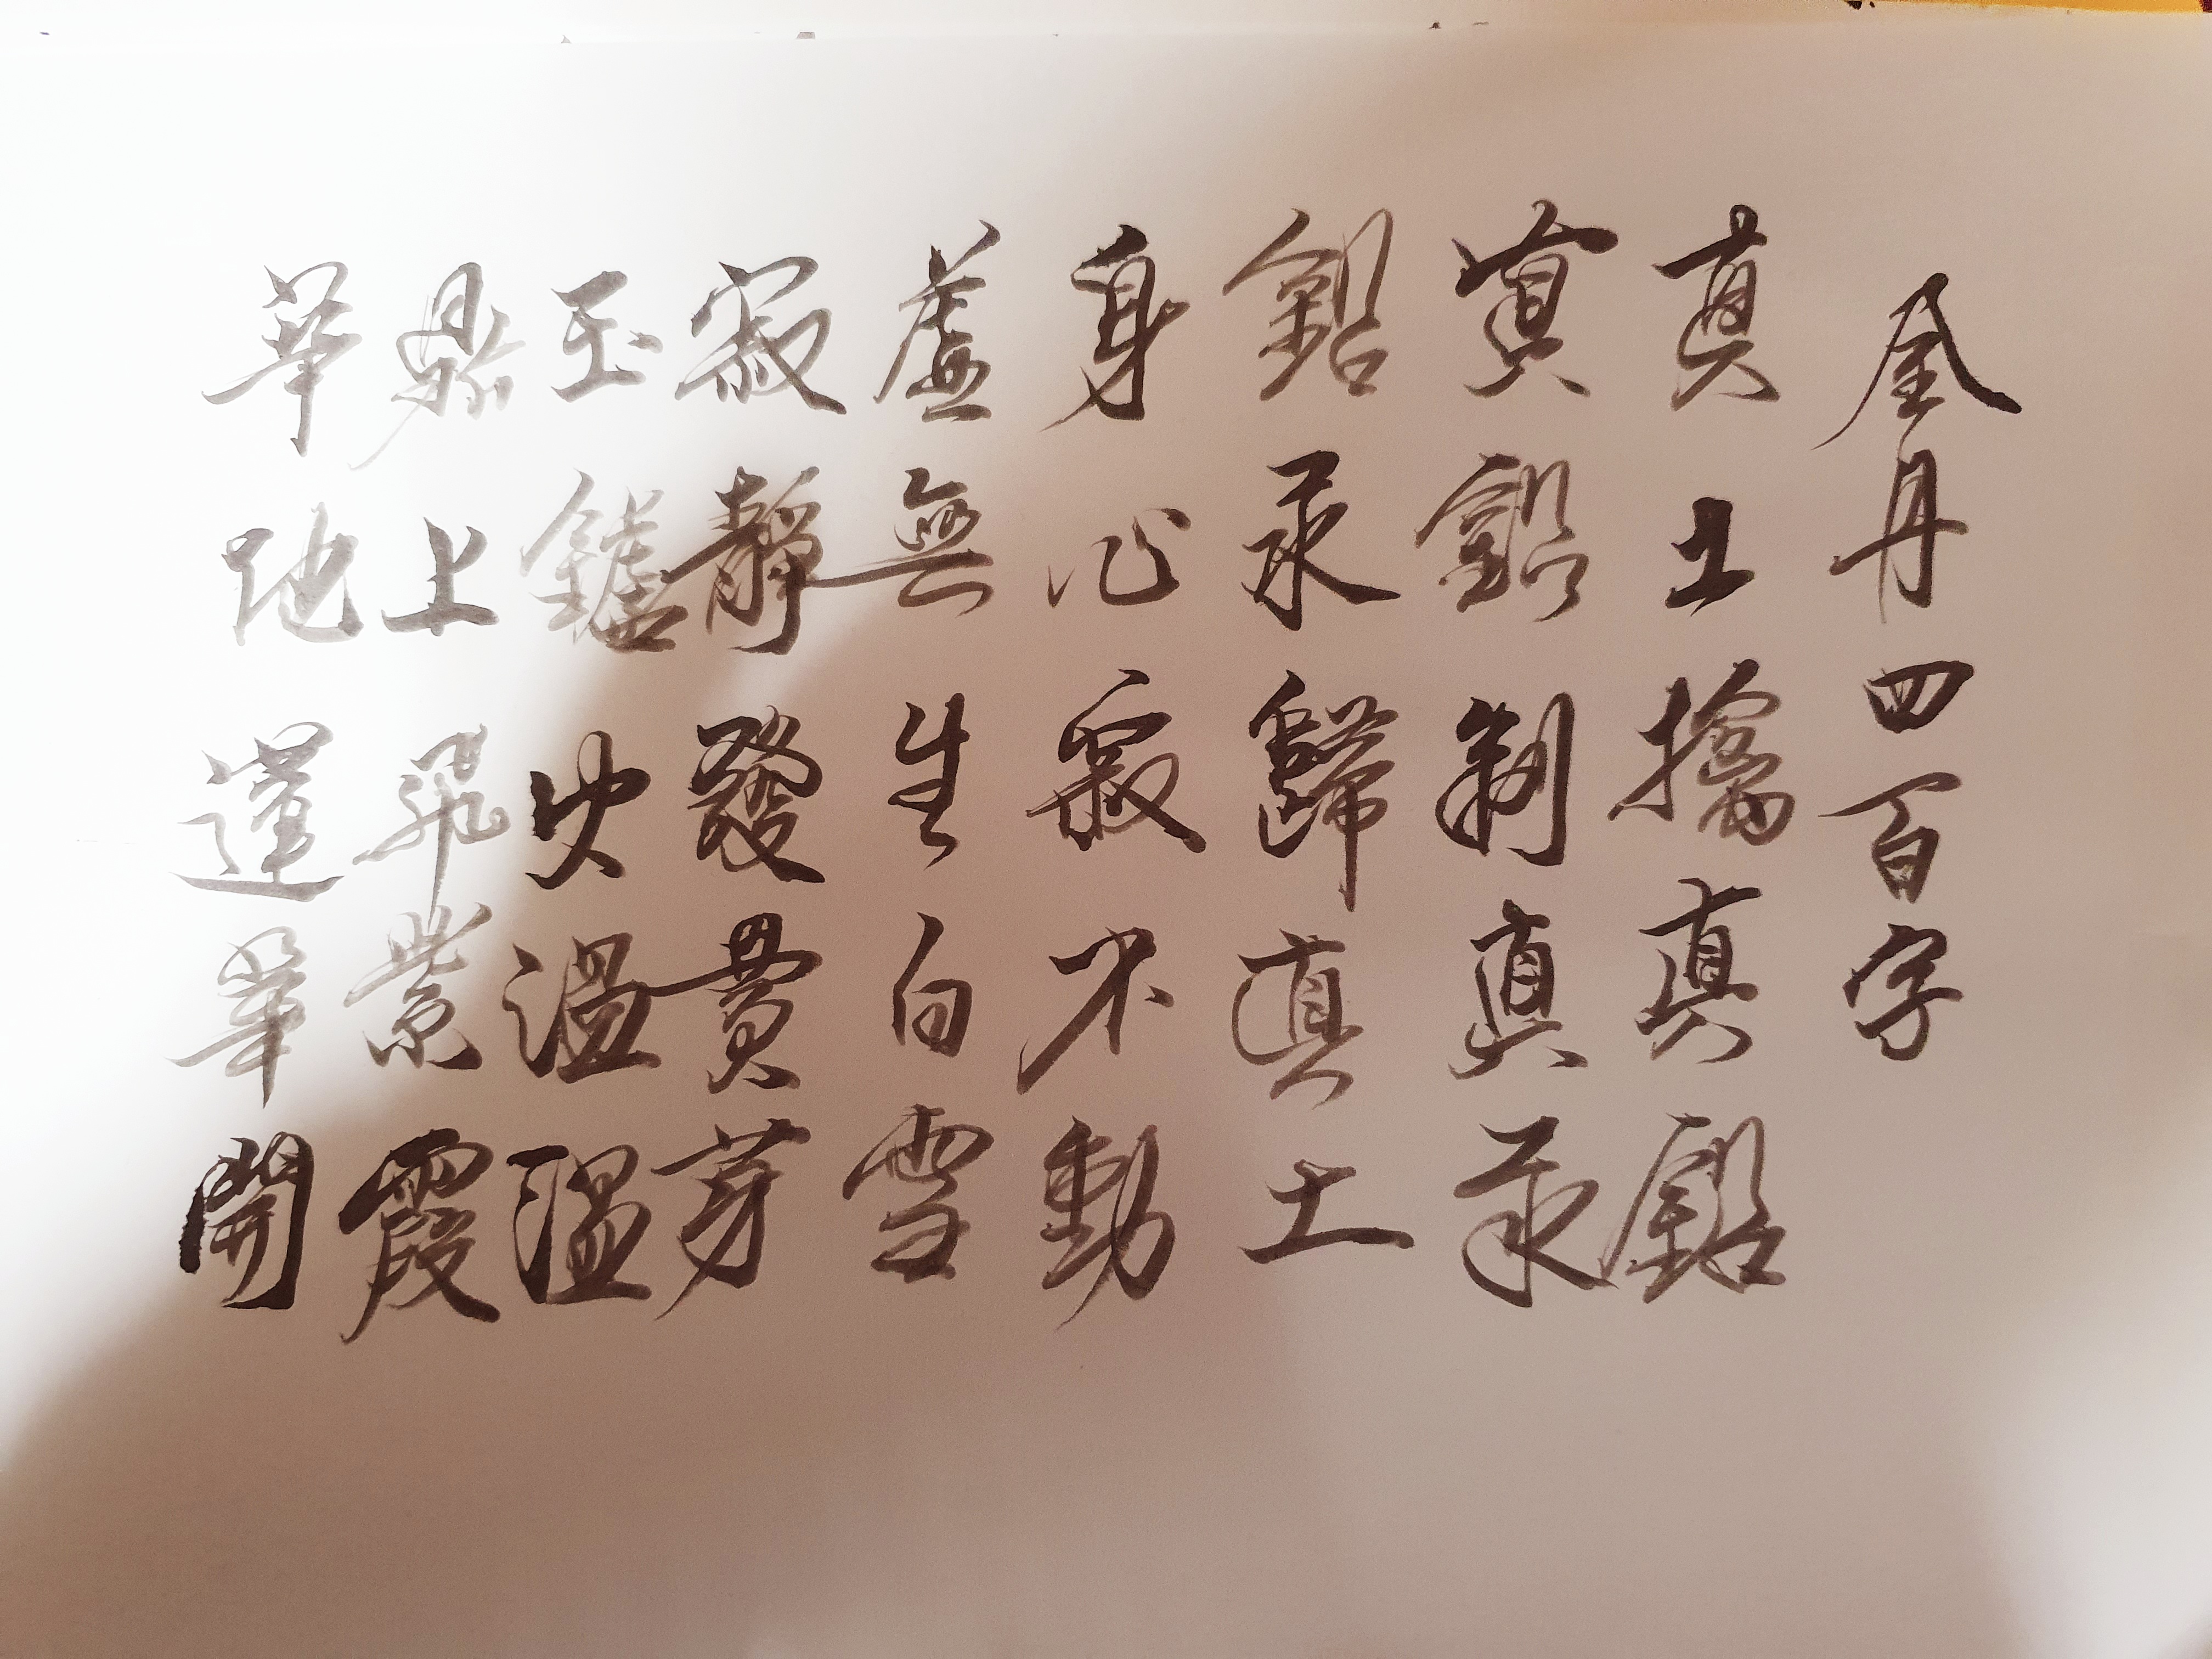 金丹四百字
真土擒真鉛
真鉛制真汞
鉛汞歸真土
身心寂不動
虛無生白雪
寂靜發黃芽
玉鑪火溫溫
鼎上飛紫霞
華池蓮華開